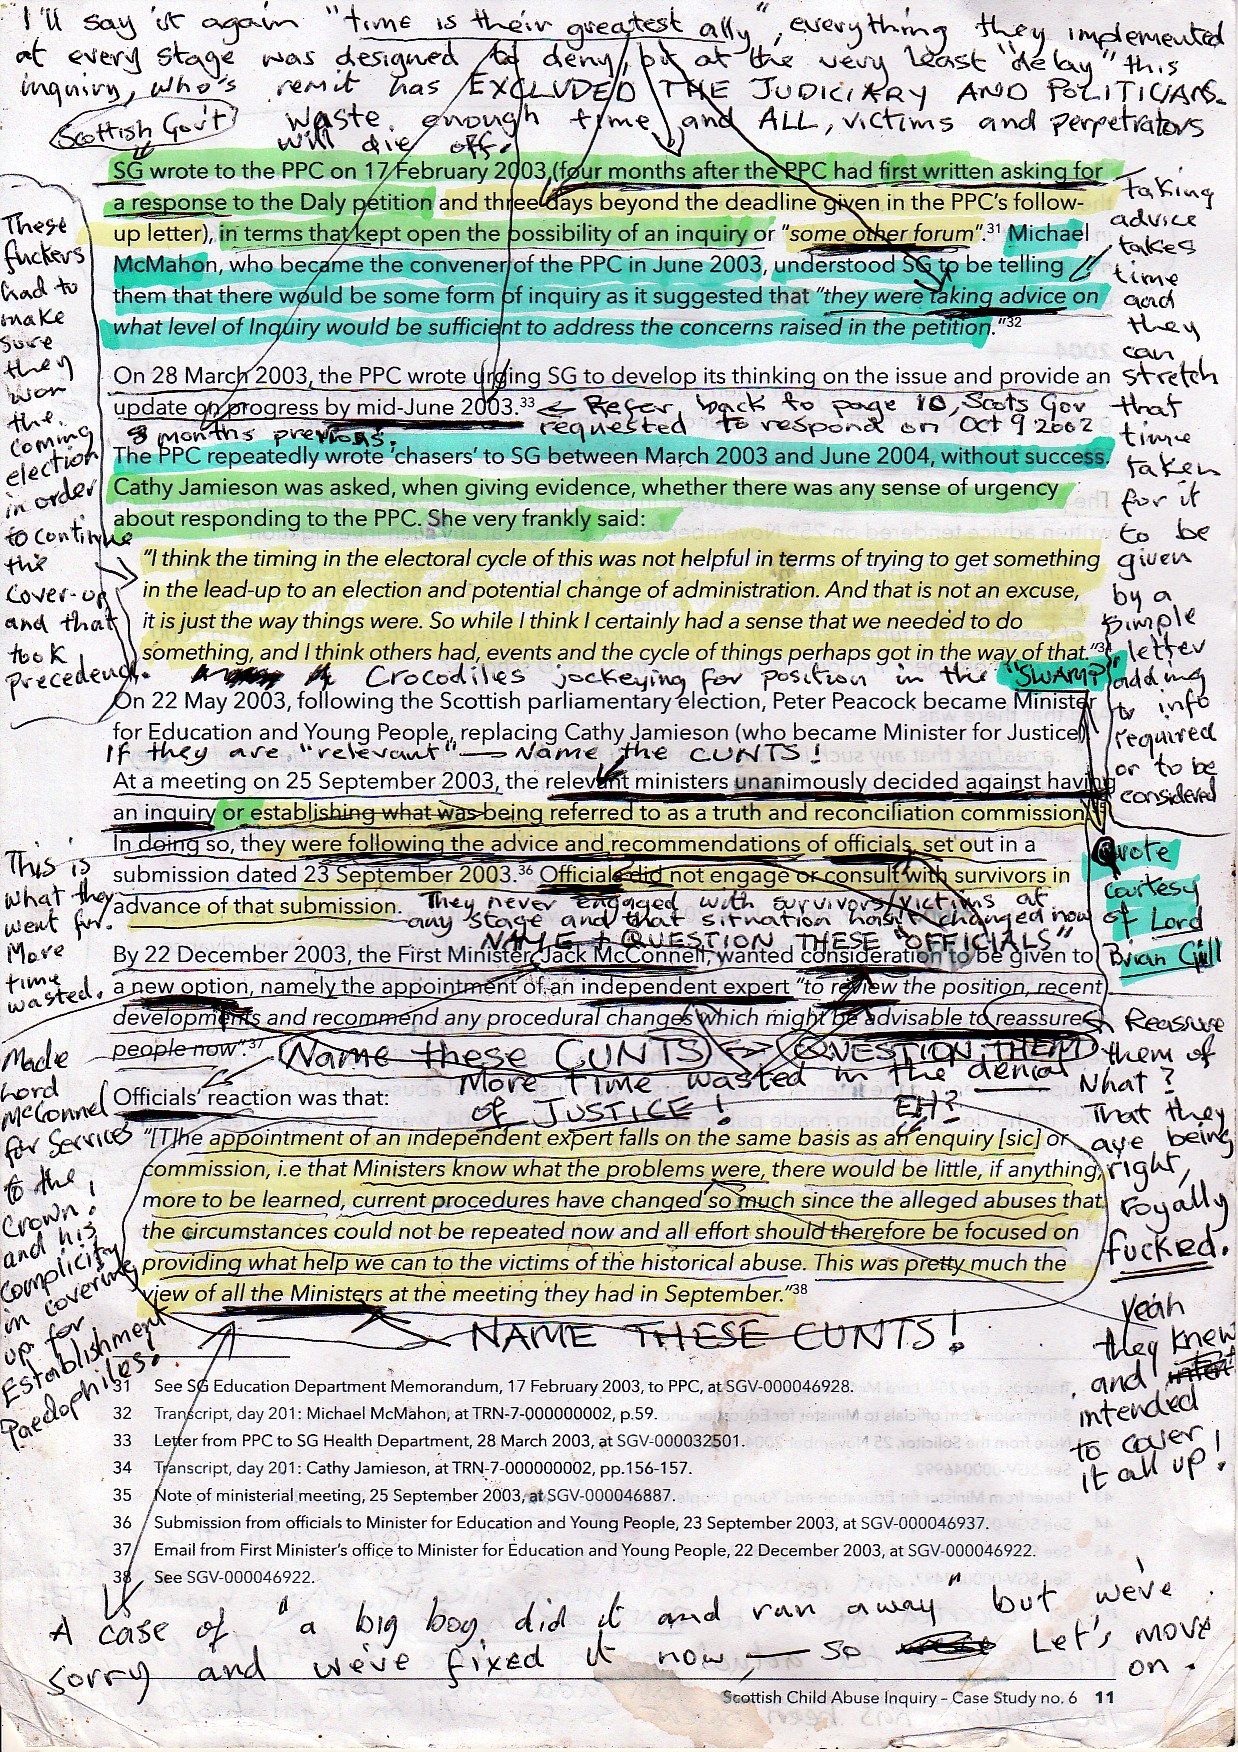 I'll say it again "time is their greatest ally", everything they implemented
at every stage was designed to deny, or at the very least "delay" this
inquiry, who's remit has EXCLUDED THE JUDICIARY AND POLITICIANS.
Scottish Gov't
Waste enough time and ALL, victims and perpetrators
will die off.
SG wrote to the PPC on 17 February 2003 (four months after the PPC had first written asking for
a response to the Daly petition and three days beyond the deadline given in the PPC's follow-
up letter), in terms that kept open the possibility of an inquiry or "some other forum".31 Michael
McMahon, who became the convener of the PPC in June 2003, understood SG to be telling
them that there would be some form of inquiry as it suggested that "they were taking advice on
what level of Inquiry would be sufficient to address the concerns raised in the petition."32
taking
advice
takes
time
and
they
can
stretch
that
time
taken
for it
to be
given
by a
simple
letter
adding
to info
required
or to be
considered
These
fuckers
had to
make
sure
they
won
the
coming
election
in order
to continue
the
cover-up
and that
took
precedence.
On 28 March 2003, the PPC wrote urging SG to develop its thinking on the issue and provide an
update on progress by mid-June 2003.33
← Refer back to page 10, Scots Gov
requested to respond on Oct 9 2002
months previous.
The PPC repeatedly wrote 'chasers' to SG between March 2003 and June 2004, without success.
Cathy Jamieson was asked, when giving evidence, whether there was any sense of urgency
about responding to the PPC. She very frankly said:
"I think the timing in the electoral cycle of this was not helpful in terms of trying to get something
in the lead-up to an election and potential change of administration. And that is not an excuse,
it is just the way things were. So while I think I certainly had a sense that we needed to do
something, and I think others had, events and the cycle of things perhaps got in the way of that."34
Crocodiles jockeying for position in the "SWAMP"
On 22 May 2003, following the Scottish parliamentary election, Peter Peacock became Minister
for Education and Young People, replacing Cathy Jamieson (who became Minister for Justice).
If they are "relevant" — Name the CUNTS!
At a meeting on 25 September 2003, the relevant ministers unanimously decided against having
an inquiry or establishing what was being referred to as a truth and reconciliation commission.
In doing so, they were following the advice and recommendations of officials, set out in a
submission dated 23 September 2003.36 Officials did not engage or consult with survivors in
advance of that submission.
They never engaged with survivors/victims at
any stage and that situation hasn't changed now
NAME + QUESTION THESE "OFFICIALS"
Quote
courtesy
of Lord
Brian Gill
This is
what they
went for.
More
time
wasted.
By 22 December 2003, the First Minister, Jack McConnell, wanted consideration to be given to
a new option, namely the appointment of an independent expert "to review the position, recent
developments and recommend any procedural changes which might be advisable to reassure
people now".37
Name these CUNTS <-> QUESTION THEM
More time wasted in the denial
of JUSTICE!
EH?
Reassure
them of
What?
That they
are being
right,
royally
fucked.
Made
Lord
McConnel
for Services
to the
Crown!
and his
complicity
in covering
up for
Establishment
Paedophiles.
Officials' reaction was that:
"[T]he appointment of an independent expert falls on the same basis as an enquiry [sic] or
commission, i.e that Ministers know what the problems were, there would be little, if anything,
more to be learned, current procedures have changed so much since the alleged abuses that
the circumstances could not be repeated now and all effort should therefore be focused on
providing what help we can to the victims of the historical abuse. This was pretty much the
view of all the Ministers at the meeting they had in September."38
NAME THESE CUNTS!
Yeah
they knew
and
intended
to cover
it all up!
31 See SG Education Department Memorandum, 17 February 2003, to PPC, at SGV-000046928.
32 Transcript, day 201: Michael McMahon, at TRN-7-000000002, p.59.
33 Letter from PPC to SG Health Department, 28 March 2003, at SGV-000032501.
34 Transcript, day 201: Cathy Jamieson, at TRN-7-000000002, pp.156-157.
35 Note of ministerial meeting, 25 September 2003, at SGV-000046887.
36 Submission from officials to Minister for Education and Young People, 23 September 2003, at SGV-000046937.
37 Email from First Minister's office to Minister for Education and Young People, 22 December 2003, at SGV-000046922.
38 See SGV-000046922.
A case of "a big boy did it and ran away" but we're
sorry and we've fixed it now, — so Let's move
on.
Scottish Child Abuse Inquiry – Case Study no. 6 11